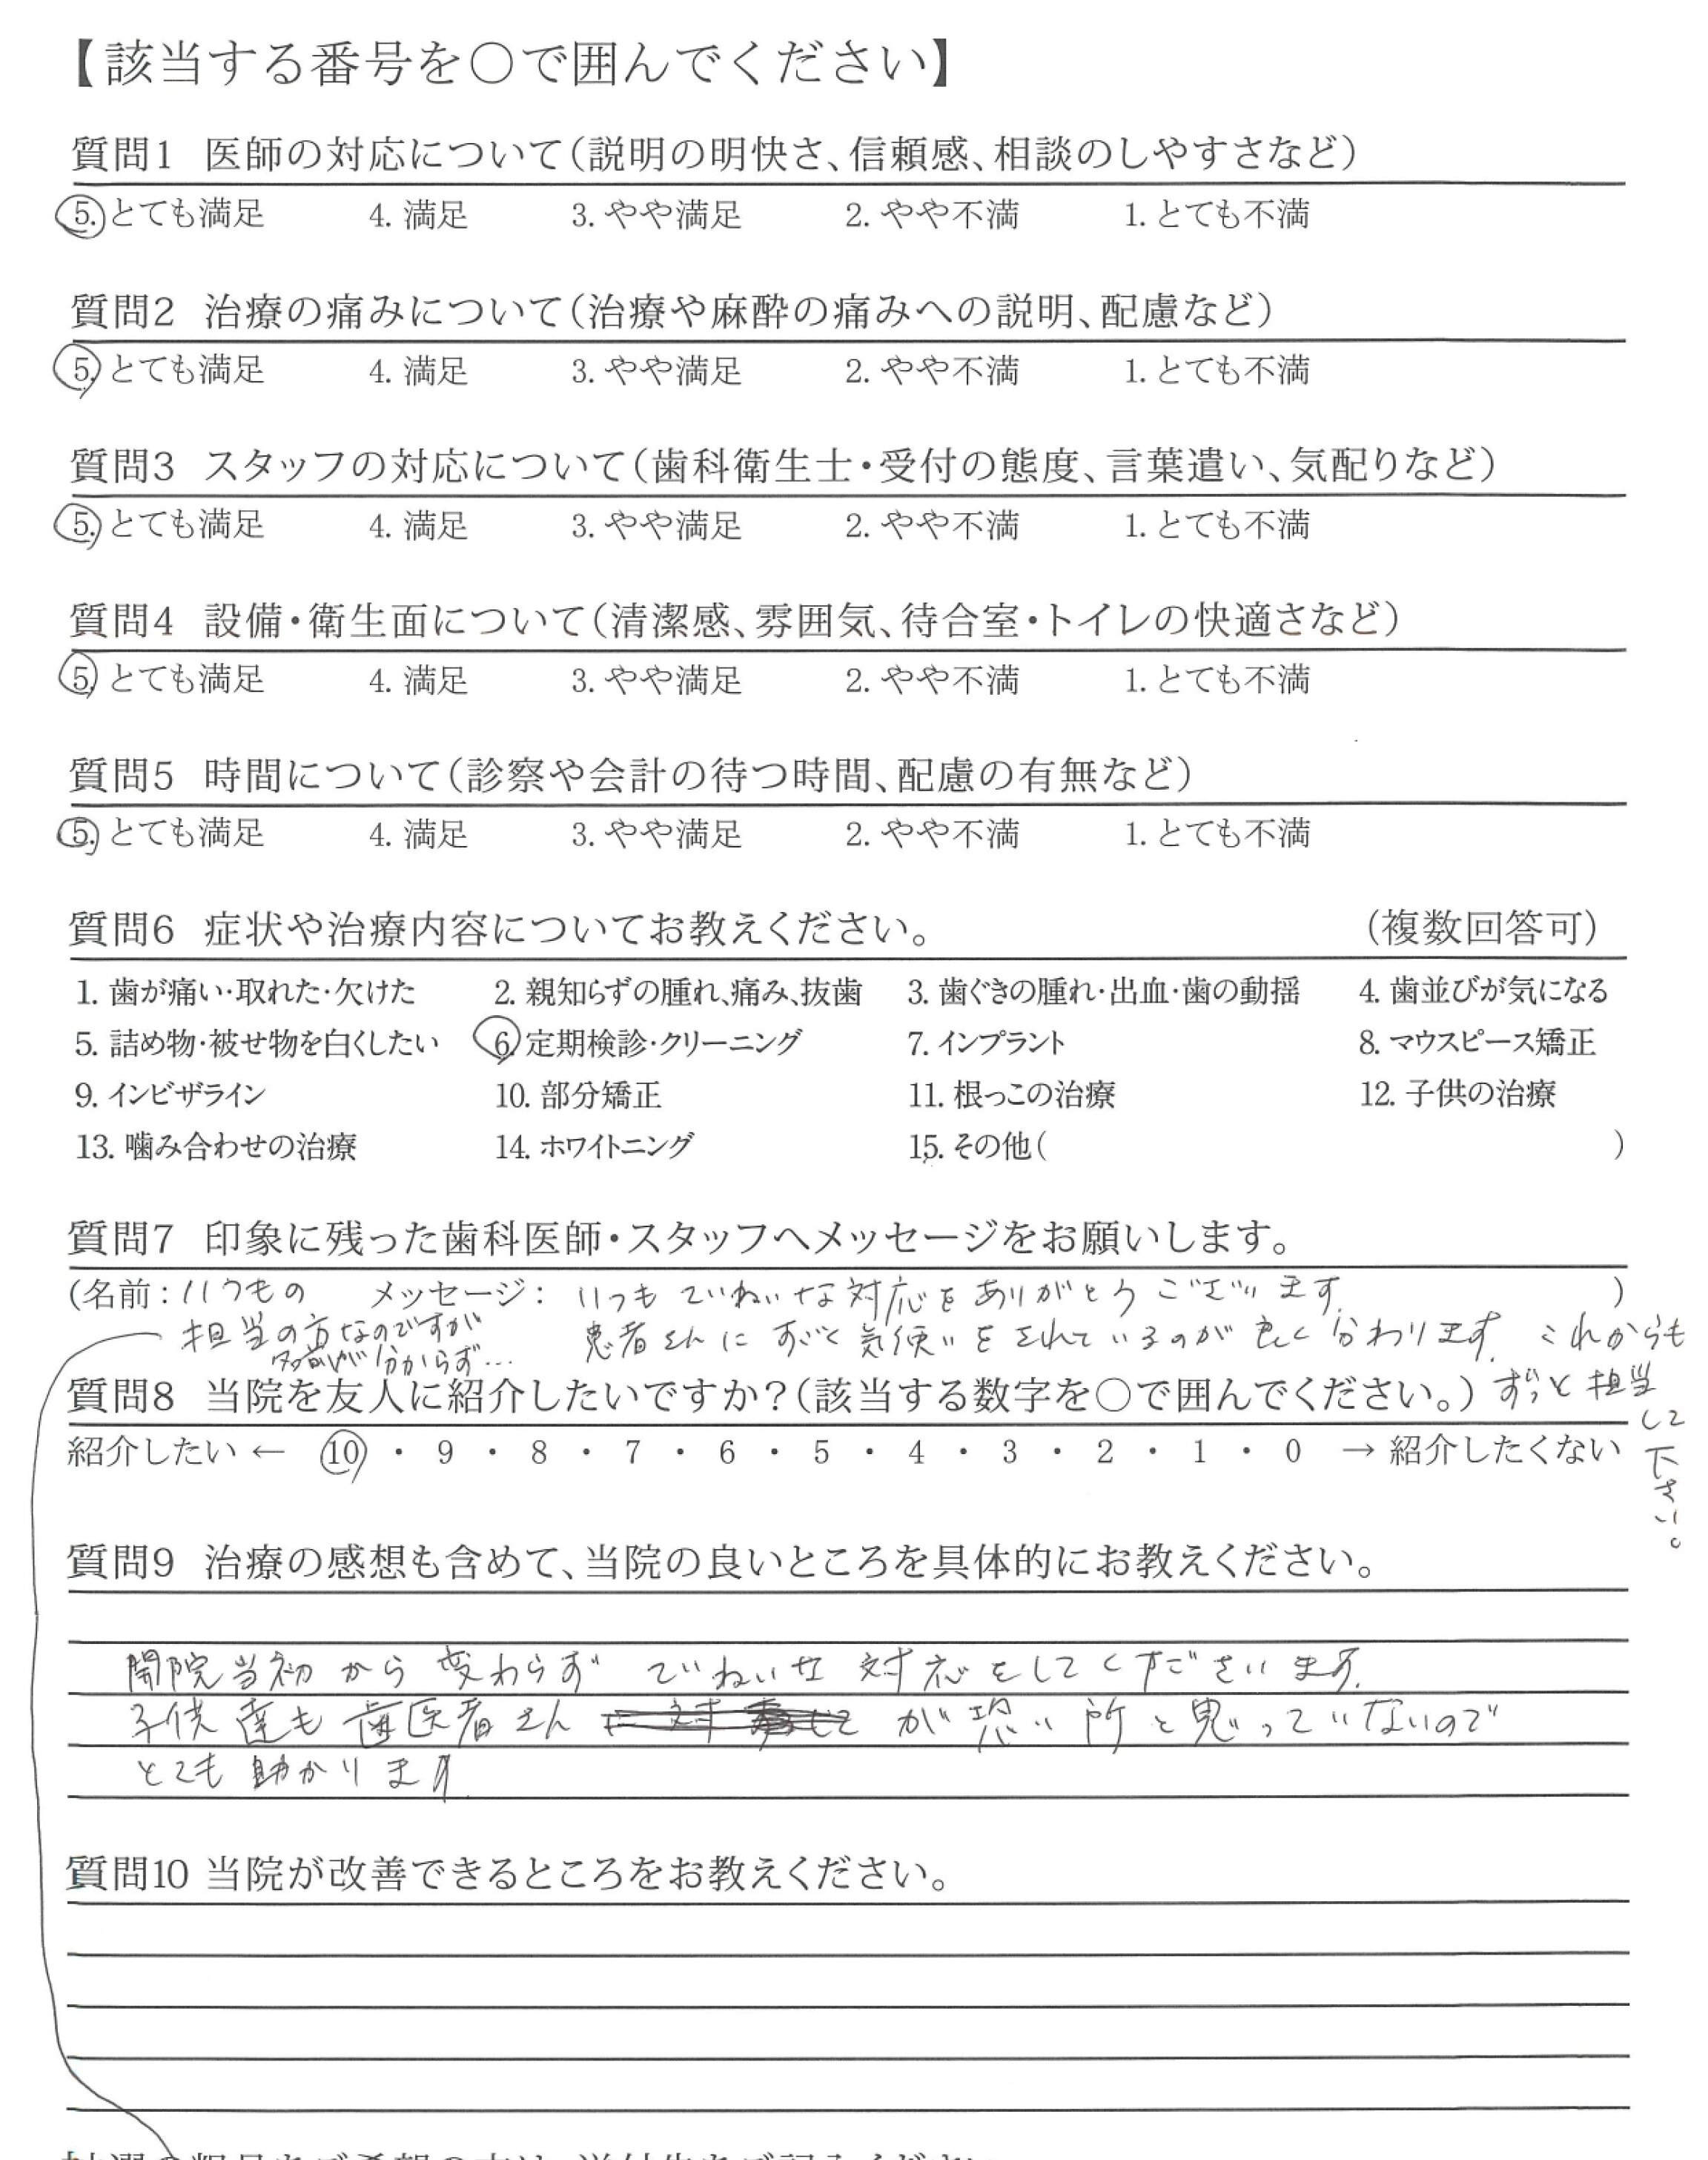 【該当する番号を○で囲んでください】
質問1 医師の対応について(説明の明快さ、信頼感、相談のしやすさなど)
5. とても満足 4. 満足 3. やや満足 2. やや不満 1. とても不満
質問2 治療の痛みについて(治療や麻酔の痛みへの説明、配慮など)
5. とても満足 4. 満足 3. やや満足 2. やや不満 1. とても不満
質問3 スタッフの対応について(歯科衛生士・受付の態度、言葉遣い、気配りなど)
5. とても満足 4. 満足 3. やや満足 2. やや不満 1. とても不満
質問4 設備・衛生面について(清潔感、雰囲気、待合室・トイレの快適さなど)
5. とても満足 4. 満足 3. やや満足 2. やや不満 1. とても不満
質問5 時間について(診察や会計の待つ時間、配慮の有無など)
5. とても満足 4. 満足 3. やや満足 2. やや不満 1. とても不満
質問6 症状や治療内容についてお教えください。 (複数回答可)
1. 歯が痛い・取れた・欠けた 2. 親知らずの腫れ、痛み、抜歯 3. 歯ぐきの腫れ・出血・歯の動揺 4. 歯並びが気になる
5. 詰め物・被せ物を白くしたい 6. 定期検診・クリーニング 7. インプラント 8. マウスピース矯正
9. インビザライン 10. 部分矯正 11. 根っこの治療 12. 子供の治療
13. 噛み合わせの治療 14. ホワイトニング 15. その他( )
質問7 印象に残った歯科医師・スタッフへメッセージをお願いします。
(名前：いつもの メッセージ： いつもていねいな対応をありがとうございます。 )
担当の方なのですが 患者さんにすごく気使いをされているのが良く分わります。これからも
名前が分からず… ずっと担当
して
下さい。
質問8 当院を友人に紹介したいですか？(該当する数字を○で囲んでください。)
紹介したい ← 10 ・ 9 ・ 8 ・ 7 ・ 6 ・ 5 ・ 4 ・ 3 ・ 2 ・ 1 ・ 0 → 紹介したくない
質問9 治療の感想も含めて、当院の良いところを具体的にお教えください。
開院当初から変わらずていねいな対応をしてくださいます。
子供達も歯医者さんが恐い所と思っていないので
とても助かります。
質問10 当院が改善できるところをお教えください。